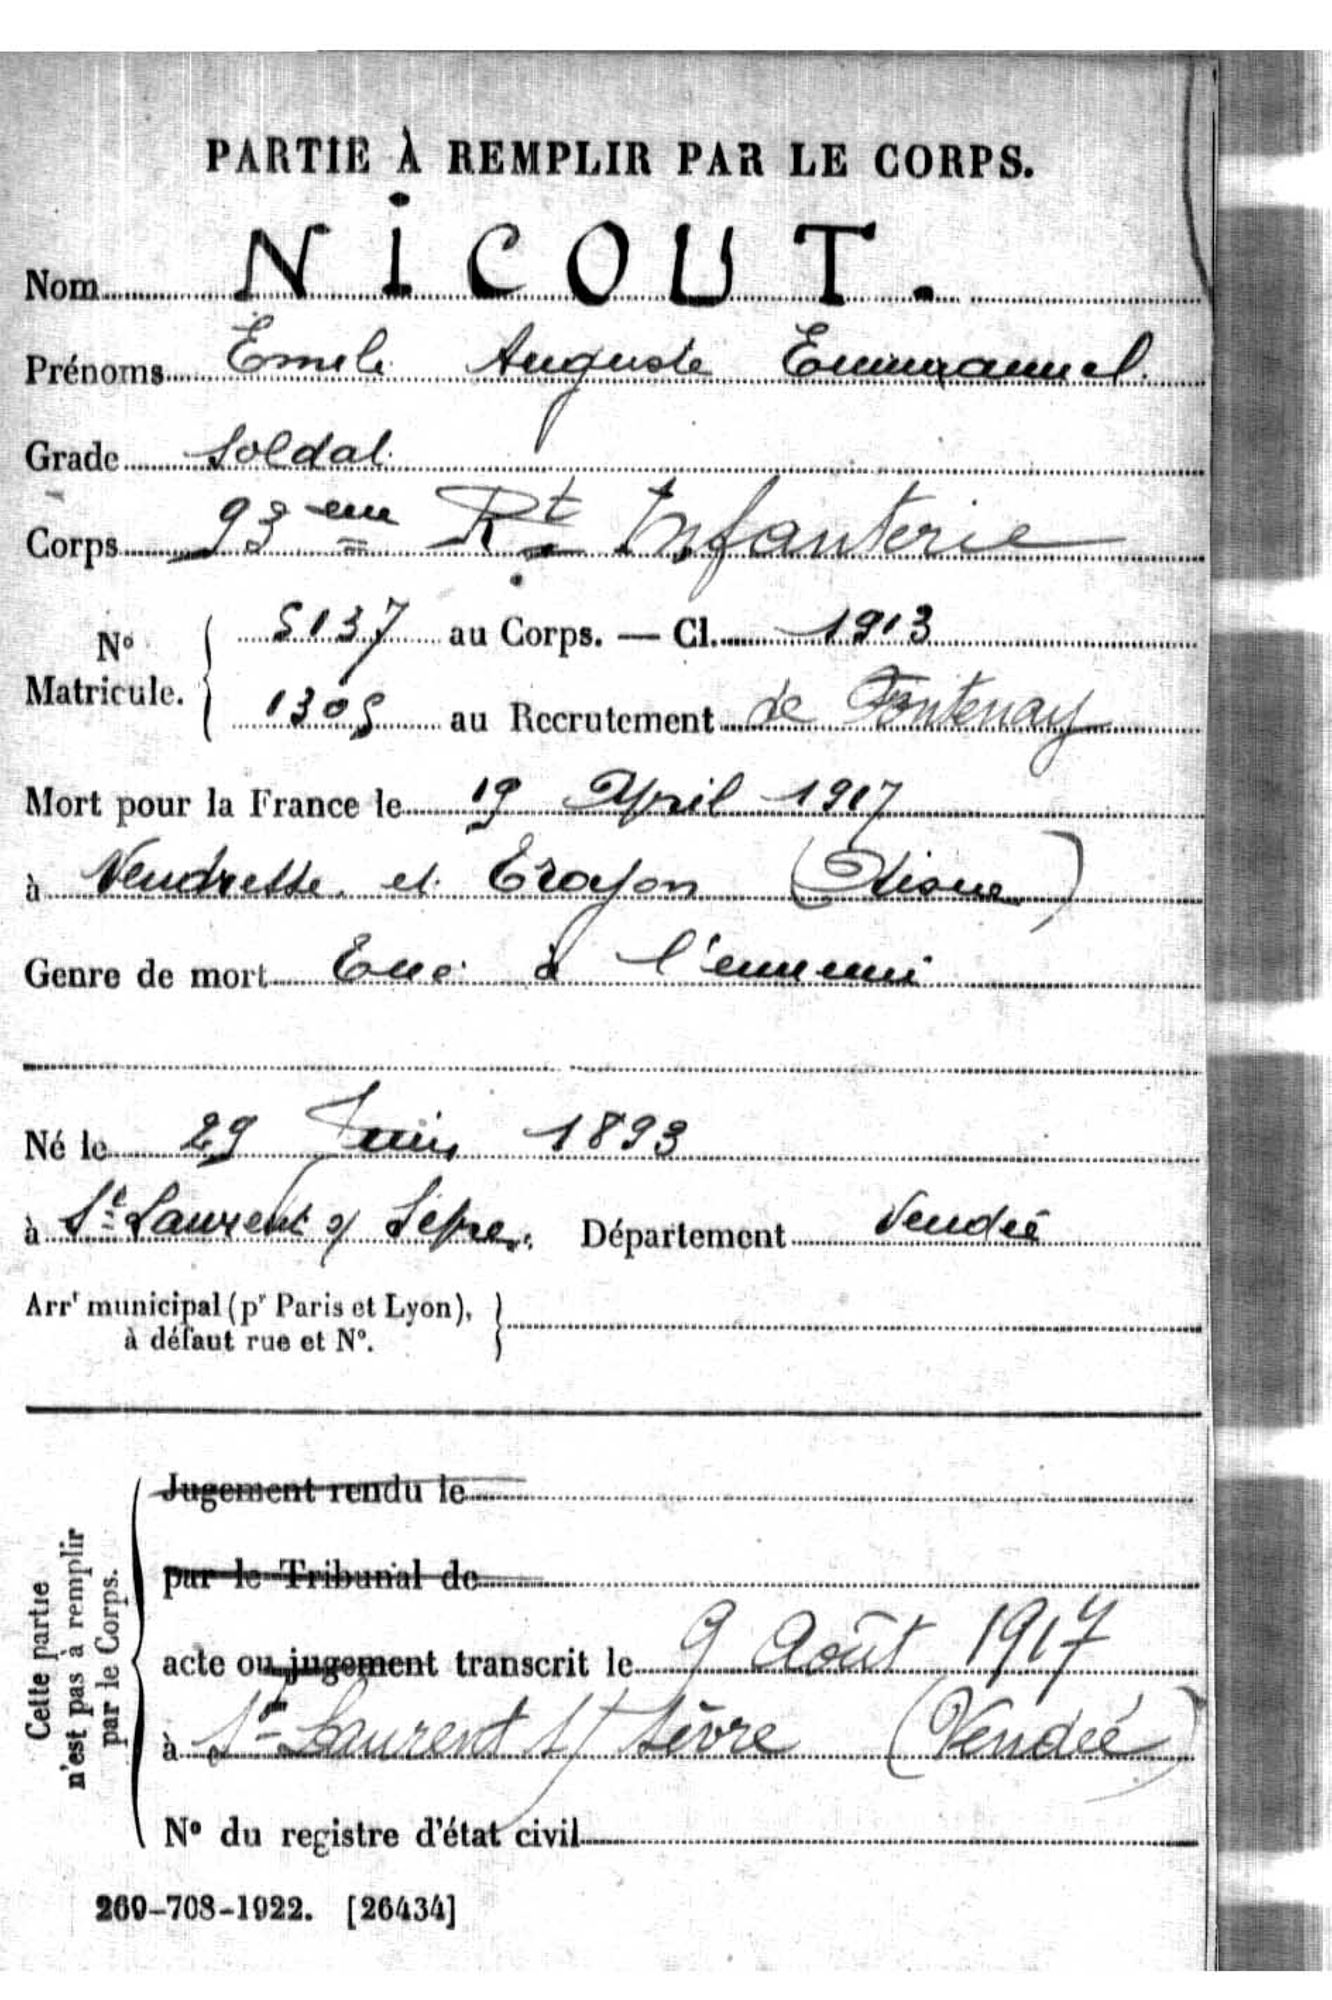 PARTIE À REMPLIR PAR LE CORPS.
Nom NICOUT.
Prénoms Emile Auguste Emmanuel
Grade Soldat
Corps 93 eme Rt Infanterie
No Matricule. { 5137 au Corps. — Cl. 1913
1305 au Recrutement de Fontenay
Mort pour la France le 19 April 1917
à Vendresse et Troyon (Aisne)
Genre de mort Tué à l'ennemi
Né le 29 Juin 1893
à St Laurent s/ Sèvre. Département Vendée
Arrt municipal (pr Paris et Lyon),
à défaut rue et No.
Cette partie
n'est pas à remplir
par le Corps.
Jugement rendu le
par le Tribunal de
acte ou jugement transcrit le 9 Août 1917
à St Laurent s/ Sèvre (Vendée)
No du registre d'état civil
269-708-1922. [26434]